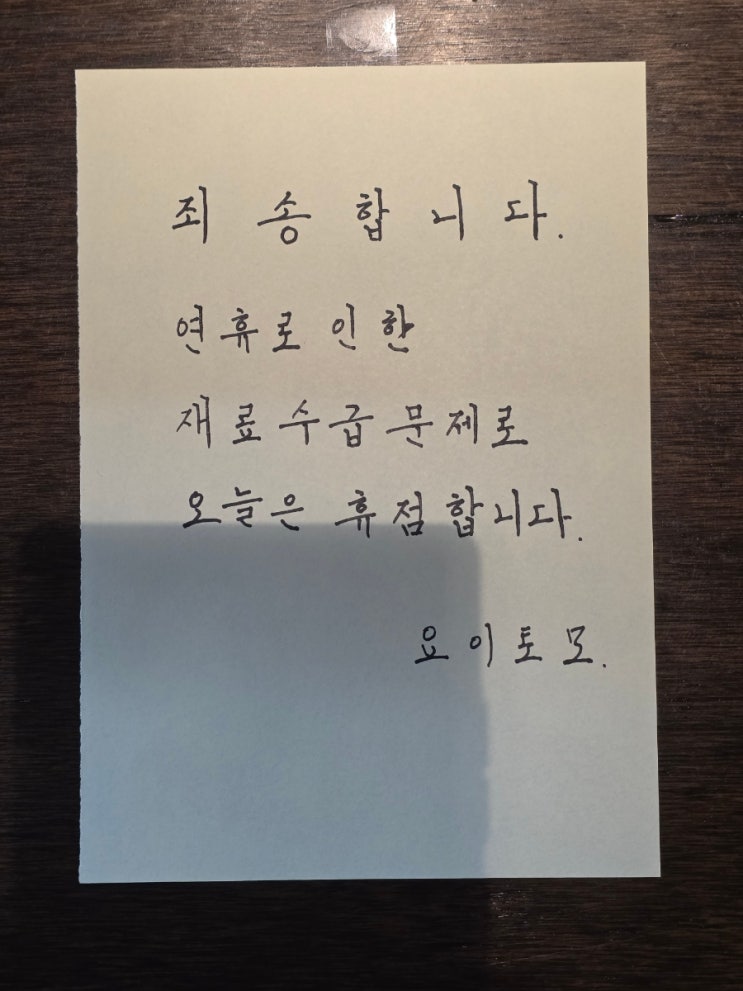 죄송합니다.
연휴로 인한
재료수급문제로
오늘은 휴점합니다.
요이토모.